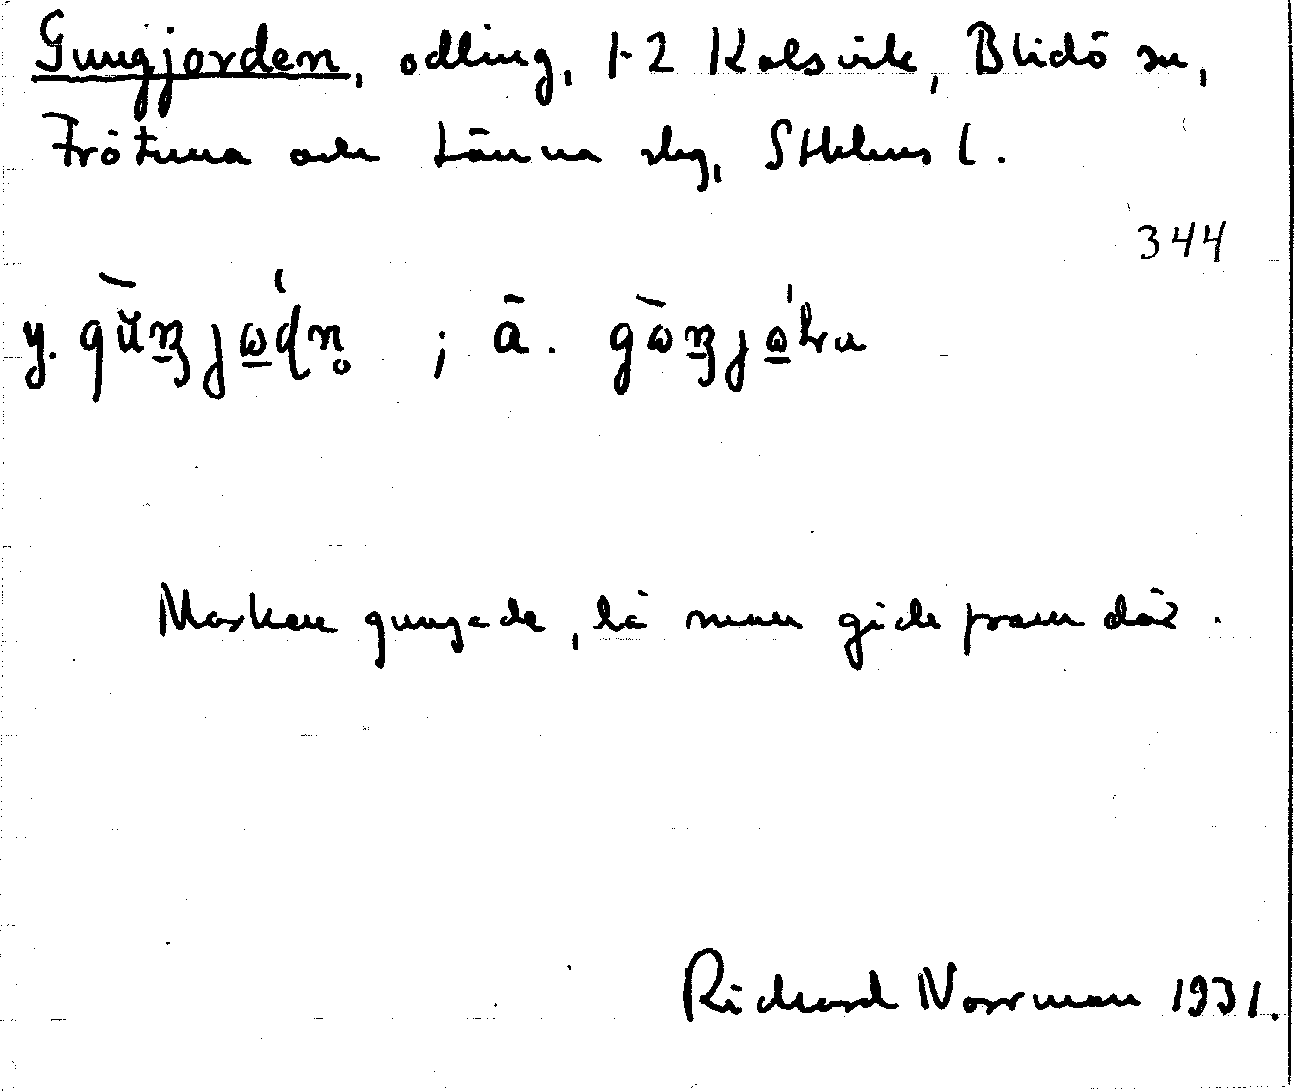 Gungjorden, odling, 1-2 Kolsvik, Blidö sn,
Frötuna och Länna slg, Sthlms l.
344
y. ; ä.
Marken gungade, lä man gick fram där.
Richard Norrman 1931.